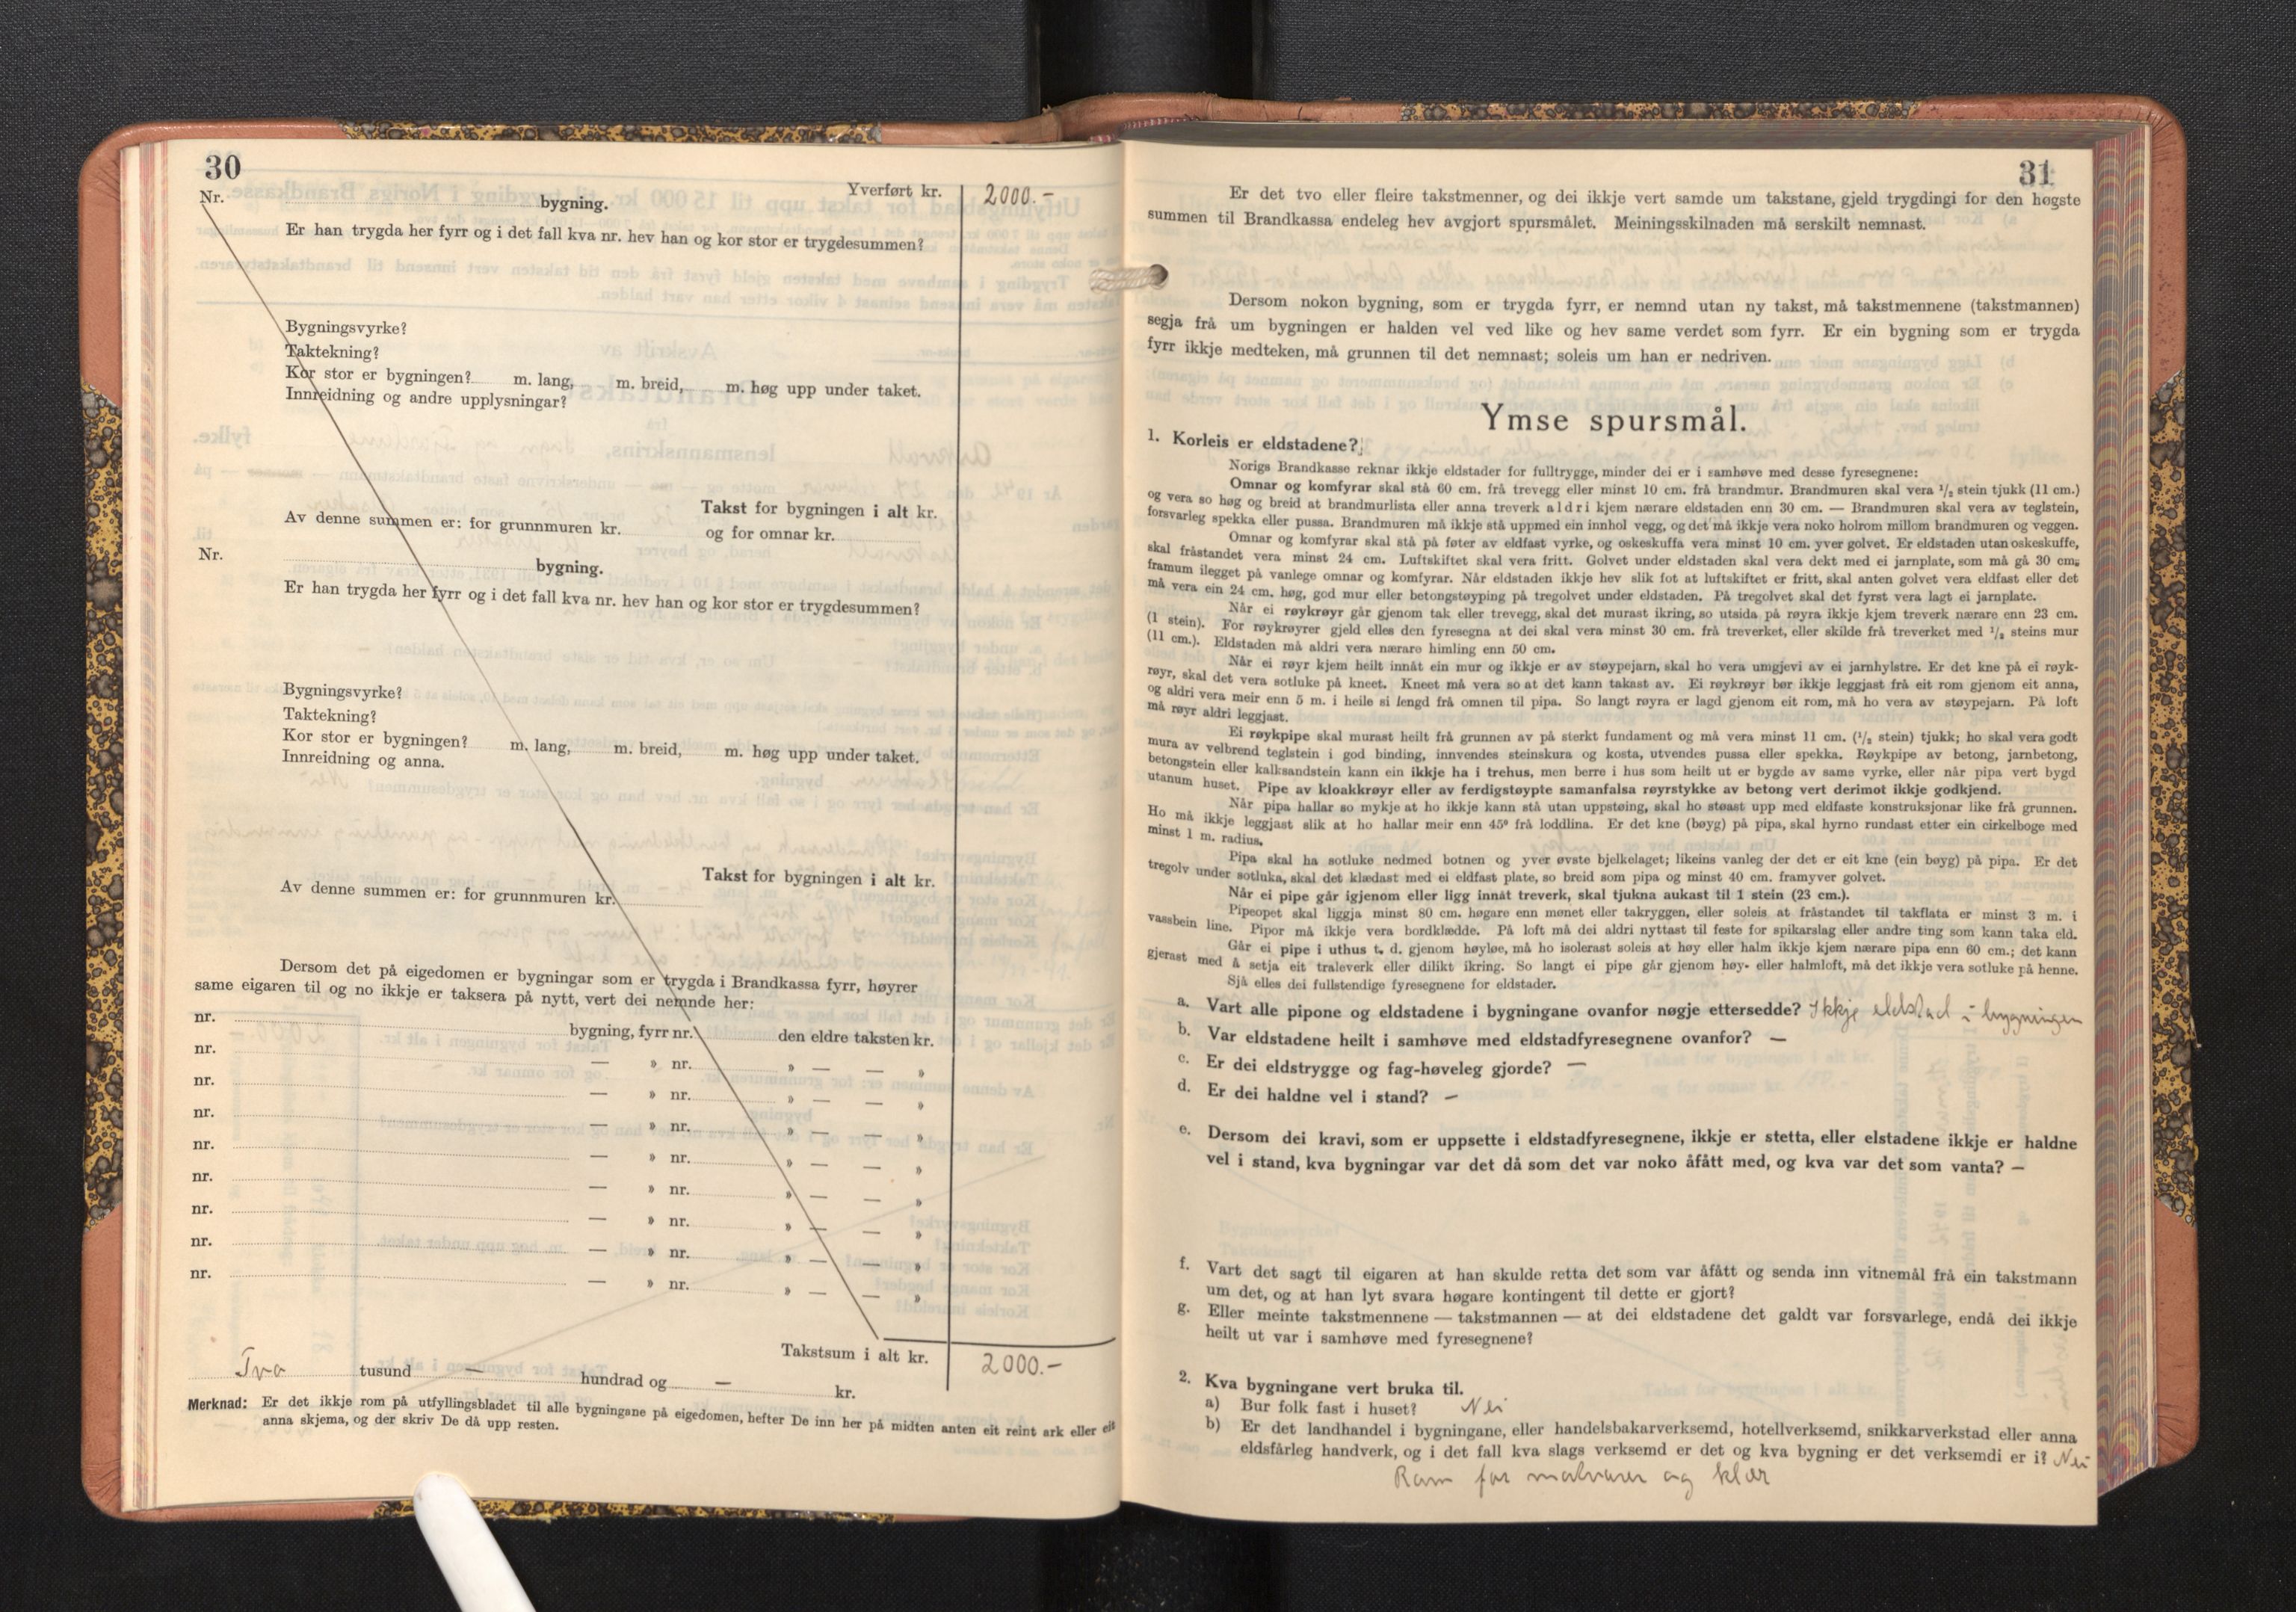 30
Yverført kr. 2000.-
Nr. bygning.
Er han trygda her fyrr og i det fall kva nr. hev han og kor stor er trygdesummen?
Bygningsvyrke?
Taktekning?
Kor stor er bygningen? m. lang, m. breid, m. høg upp under taket.
Innreidning og andre upplysningar?
Takst for bygningen i alt kr.
Av denne summen er: for grunnmuren kr. og for omnar kr.
Nr. bygning.
Er han trygda her fyrr og i det fall kva nr. hev han og kor stor er trygdesummen?
Bygningsvyrke?
Taktekning?
Kor stor er bygningen? m. lang, m. breid, m. høg upp under taket.
Innreidning og anna.
Takst for bygningen i alt kr.
Av denne summen er: for grunnmuren kr.
Dersom det på eigedomen er bygningar som er trygda i Brandkassa fyrr, høyrer
same eigaren til og no ikkje er taksera på nytt, vert dei nemnde her:
nr. bygning, fyrr nr. den eldre taksten kr.
nr. — » nr. » — — »
nr. — » nr. » — — »
nr. — » nr. » — — »
nr. — » nr. » — — »
nr. — » nr. » — — »
nr. — » nr. » — — »
nr. — » nr. » — — »
nr. — » nr. » — — »
Takstsum i alt kr. 2000.-
Tvo tusund — hundrad og — kr.
Merknad: Er det ikkje rom på utfyllingsbladet til alle bygningane på eigedomen, hefter De inn her på midten anten eit reint ark eller eit
anna skjema, og der skriv De då upp resten.
31
Er det tvo eller fleire takstmenner, og dei ikkje vert samde um takstane, gjeld trygdingi for den høgste
summen til Brandkassa endeleg hev avgjort spursmålet. Meiningsskilnaden må serskilt nemnast.
Dersom nokon bygning, som er trygda fyrr, er nemnd utan ny takst, må takstmennene (takstmannen)
segja frå um bygningen er halden vel ved like og hev same verdet som fyrr. Er ein bygning som er trygda
fyrr ikkje medteken, må grunnen til det nemnast; soleis um han er nedriven.
Ymse spursmål.
1. Korleis er eldstadene?
Norigs Brandkasse reknar ikkje eldstader for fulltrygge, minder dei er i samhøve med desse fyresegnene:
Omnar og komfyrar skal stå 60 cm. frå trevegg eller minst 10 cm. frå brandmur. Brandmuren skal vera 1/2 stein tjukk (11 cm.)
og vera so høg og breid at brandmurlista eller anna treverk aldri kjem nærare eldstaden enn 30 cm. — Brandmuren skal vera av teglstein,
forsvarleg spekka eller pussa. Brandmuren må ikkje stå uppmed ein innhol vegg, og det må ikkje vera noko holrom millom brandmuren og veggen.
Omnar og komfyrar skal stå på føter av eldfast vyrke, og oskeskuffa vera minst 10 cm. yver golvet. Er eldstaden utan oskeskuffe,
skal fråstandet vera minst 24 cm. Luftskiftet skal vera fritt. Golvet under eldstaden skal vera dekt med ei jarnplate, som må gå 30 cm.
framum ilegget på vanlege omnar og komfyrar. Når eldstaden ikkje hev slik fot at luftskiftet er fritt, skal anten golvet vera eldfast eller det
må vera ein 24 cm. høg, god mur eller betongstøyping på tregolvet under eldstaden. På tregolvet skal det fyrst vera lagt ei jarnplate.
Når ei røykrøyr går gjenom tak eller trevegg, skal det murast ikring, so utsida på røyra ikkje kjem treverk nærare enn 23 cm.
(1 stein). For røykrøyrer gjeld elles den fyresegna at dei skal vera minst 30 cm. frå treverket, eller skilde frå treverket med 1/2 steins mur
(11 cm.). Eldstaden må aldri vera nærare himling enn 50 cm.
Når ei røyr kjem heilt innåt ein mur og ikkje er av støypejarn, skal ho vera umgjevi av ei jarnhylstre. Er det kne på ei røyk-
røyr, skal det vera sotluke på kneet. Kneet må vera so at det kann takast av. Ei røykrøyr bør ikkje leggjast frå eit rom gjenom eit anna,
og aldri vera meir enn 5 m. i heile si lengd frå omnen til pipa. So langt røyra er lagd gjenom eit rom, må ho vera av støypejarn. På loft
må røyr aldri leggjast.
Ei røykpipe skal murast heilt frå grunnen av på sterkt fundament og må vera minst 11 cm. (1/2 stein) tjukk; ho skal vera godt
mura av velbrend teglstein i god binding, innvendes steinskura og kosta, utvendes pussa eller spekka. Røykpipe av betong, jarnbetong,
betongstein eller kalksandstein kann ein ikkje ha i trehus, men berre i hus som heilt ut er bygde av same vyrke, eller når pipa vert bygd
utanum huset. Pipe av kloakkrøyr eller av ferdigstøypte samanfalsa røyrstykke av betong vert derimot ikkje godkjend.
Når pipa hallar so mykje at ho ikkje kann stå utan uppstøing, skal ho støast upp med eldfaste konstruksjonar like frå grunnen.
Ho må ikkje leggjast slik at ho hallar meir enn 45° frå loddlina. Er det kne (bøyg) på pipa, skal hyrno rundast etter ein cirkelboge med
minst 1 m. radius.
Pipa skal ha sotluke nedmed botnen og yver øvste bjelkelaget; likeins vanleg der det er eit kne (ein bøyg) på pipa. Er det
tregolv under sotluka, skal det klædast med ei eldfast plate, so breid som pipa og minst 40 cm. framyver golvet.
Når ei pipe går igjenom eller ligg innåt treverk, skal tjukna aukast til 1 stein (23 cm.).
Pipeopet skal liggja minst 80 cm. høgare enn mønet eller takryggen, eller soleis at fråstandet til takflata er minst 3 m. i
vassbein line. Pipor må ikkje vera bordklædde. På loft må dei aldri nyttast til feste for spikarslag eller andre ting som kann taka eld.
Går ei pipe i uthus t. d. gjenom høyløe, må ho isolerast soleis at høy eller halm ikkje kjem nærare pipa enn 60 cm.; det kann
gjerast med å setja eit traleverk eller dilikt ikring. So langt ei pipe går gjenom høy- eller halmloft, må det ikkje vera sotluke på henne.
Sjå elles dei fullstendige fyresegnene for eldstader.
a. Vart alle pipone og eldstadene i bygningane ovanfor nøgje ettersedde? Ikkje eldstad i bygningen
b. Var eldstadene heilt i samhøve med eldstadfyresegnene ovanfor? —
c. Er dei eldstrygge og fag-høveleg gjorde? —
d. Er dei haldne vel i stand? —
e. Dersom dei kravi, som er uppsette i eldstadfyresegnene, ikkje er stetta, eller elstadene ikkje er haldne
vel i stand, kva bygningar var det då som det var noko åfått med, og kva var det som vanta? —
f. Vart det sagt til eigaren at han skulde retta det som var åfått og senda inn vitnemål frå ein takstmann
um det, og at han lyt svara høgare kontingent til dette er gjort?
g. Eller meinte takstmennene — takstmannen — at dei eldstadene det galdt var forsvarlege, endå dei ikkje
heilt ut var i samhøve med fyresegnene?
2. Kva bygningane vert bruka til.
a) Bur folk fast i huset? Nei
b) Er det landhandel i bygningane, eller handelsbakarverksemd, hotellverksemd, snikkarverkstad eller anna
eldsfårleg handverk, og i det fall kva slags verksemd er det og kva bygning er det verksemdi er i? Nei
Rom for matvarer og klær